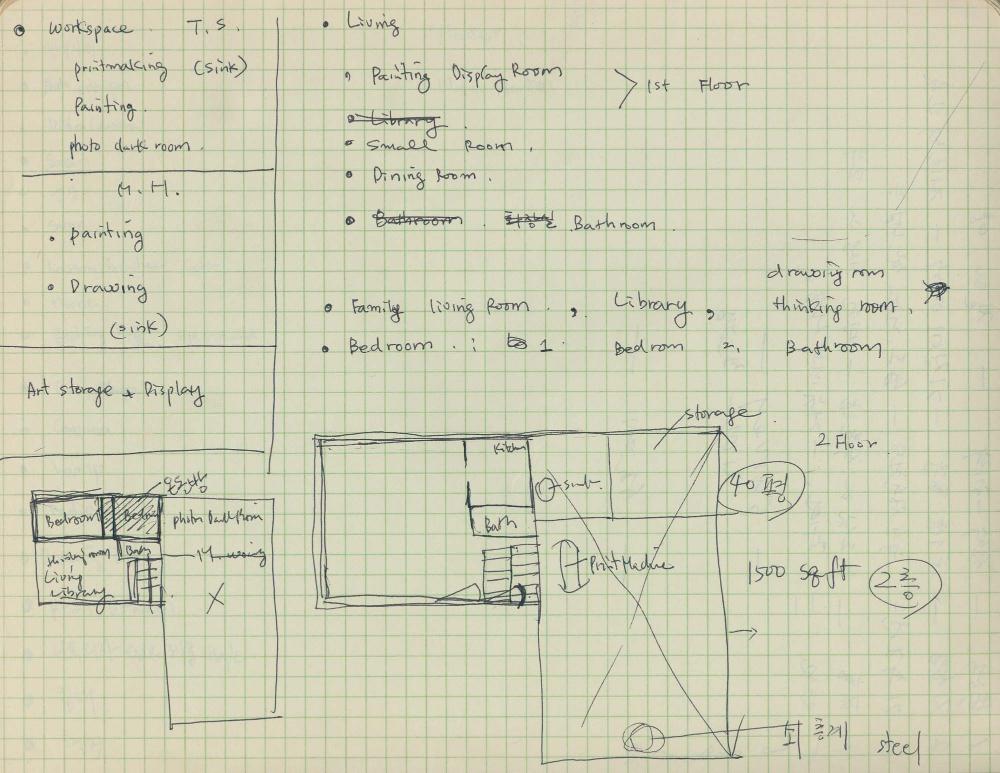 workspace T.S.
printmaking (sink)
Painting.
photo dark room.
M.H.
painting
Drawing
(sink)
Art storage + Display
Living
Painting Display Room
1st Floor
Library
Small Room.
Dining Room.
Bathroom. 화장실 Bathroom.
drawing rom
Family living Room. , Library, thinking room.
Bedroom. : 1. Bedrom 2. Bathroom
storage
2 Floor
Kitchen
sink
40평
Bath
Print Machine
1500 sqft
2층
steel
온돌방
Bedroom
photo Dark Room
Bath
thinking room
Living
Library